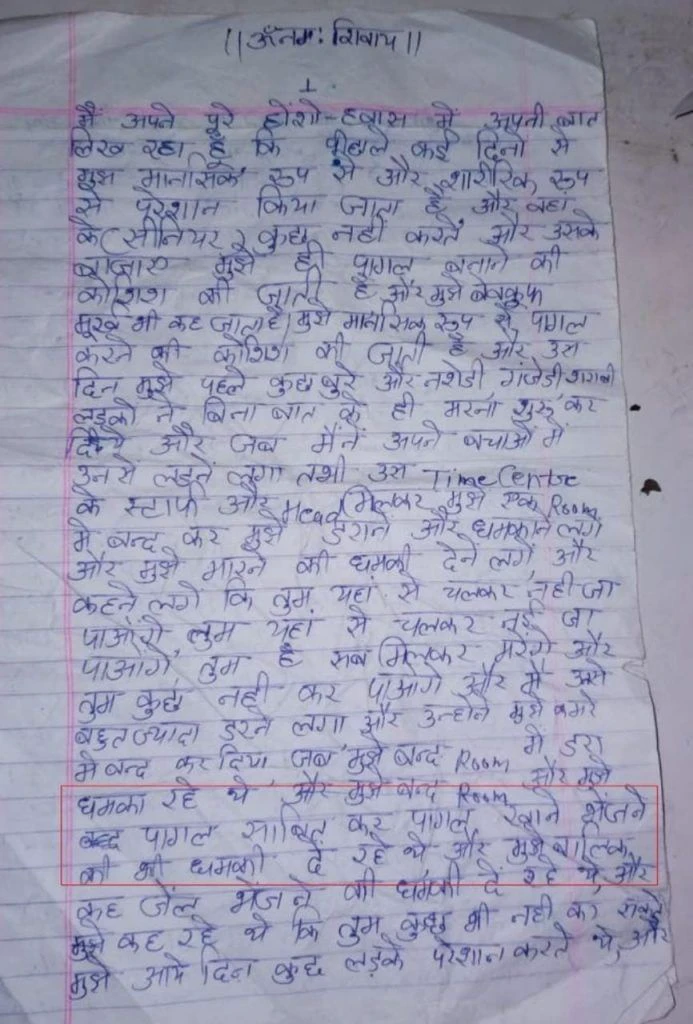 ||ॐ नमः शिवाय||
1
मैं अपने पुरे होंशो-हवास में अपनी बात
लिख रहा हूँ कि पीछले कई दिनो से
मुझे मानसिक रूप से और शारीरिक रूप
से परेशान किया जाता है और वहां
के (सीनियर) कुछ नहीं करते और उसके
बाजाए मुझे ही पागल बनाने की
कोशिश की जाती है और मुझे बेवकुफ
मुर्ख भी कह जाता है, मुझे मानसिक रूप से पागल
करने की कोशिश की जाती है और उस
दिन मुझे पहले कुछ बुरे और नशेडी, गंजेडी, शराबी
लड़को ने बिना बात के ही मरना शुरू कर
दिये और जब मैंने अपने बचाओ में
उन से लड़ने लगा तभी उस Time Centre
के स्टाफ और Head मिलकर मुझे एक Room
मे बन्द कर मुझे डराने और धमकाने लगे
और मुझे मारने की धमकी देने लगे, और
कहने लगे कि तुम यहां से चलकर नही जा
पाओगे, तुम यहां से चलकर नही जा
पाओगे, तुम है सब मिलकर मरेंगे और
तुम कुछ नही कर पाओगे और मैं उसे
बहुत ज्यादा डरने लगा और उन्होने मुझे कमरे
मे बन्द कर दिया जब मुझे बन्द Room में डरा
धमका रहे थे, और मुझे बन्द Room और मुझे
पागल साबित कर पागल खाने भेजने
की भी धमकी दे रहे थे, और मुझे बालिक
कह जेल भेजने की धमकी दे रहे थे, और
मुझे कह रहे थे कि तुम कुछ भी नही कर सकते
मुझे आये दिन कुछ लड़के परेशान करते थे, और